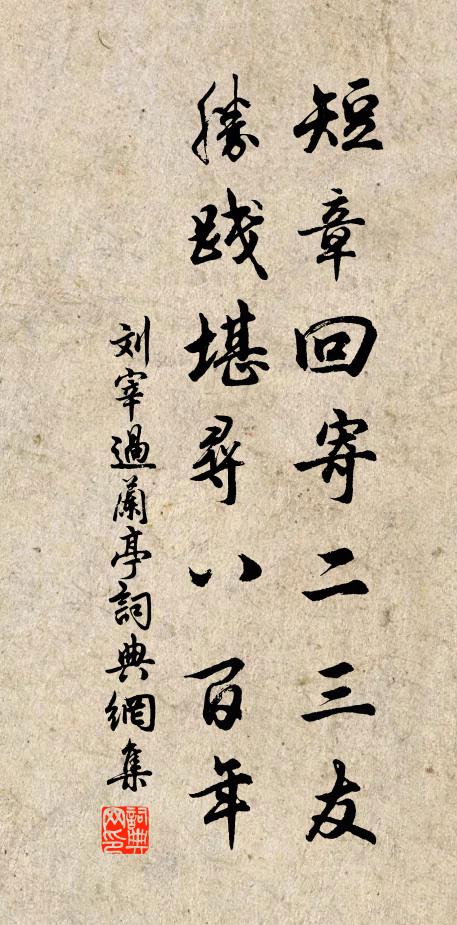 短章回寄二三友
勝踐堪尋八百年
刘宰過蘭亭詞典網集
詞典网印